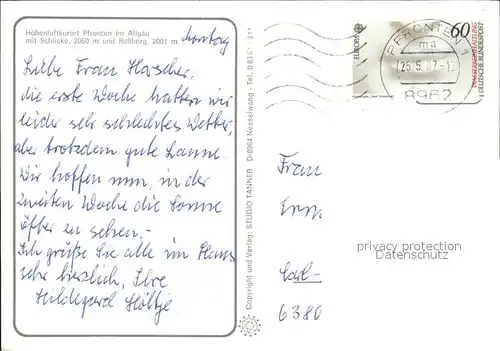 Höhenluftkurort Pfronten im Allgäu
mit Schlicke, 2060 m und Roßberg, 2001 m
Montag
Liebe Frau Horscher,
die erste Woche hatten wir
leider sehr schlechtes Wetter,
aber trotzdem gute Laune.
Wir hoffen nun, in der
zweiten Woche die Sonne
öfter zu sehen.-
Ich grüße Sie alle im Haus
sehr herzlich, Ihre
Hildegard Höltje.
Copyright und Verlag: STUDIO TANNER D-8964 Nesselwang · Tel. 0 83 61 211
EUROPA
60
DEUTSCHE BUNDESPOST
PFRONTEN 1
ma
25.5.87-17
8962
Frau
Carl-
6380
privacy protection
Datenschutz